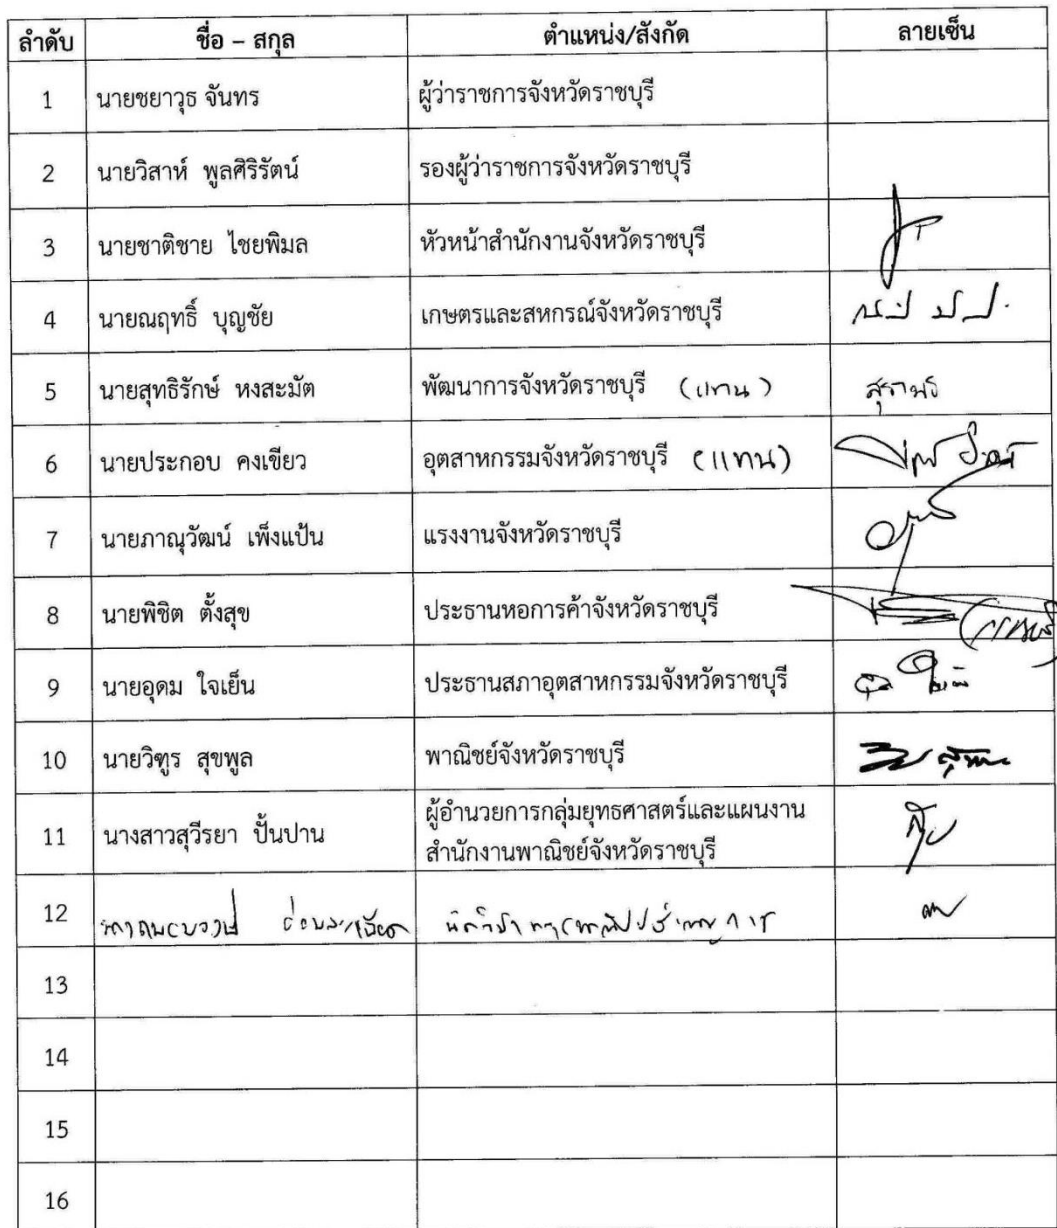 ลำดับ ชื่อ – สกุล ตำแหน่ง/สังกัด ลายเซ็น
1 นายชยาวุธ จันทร ผู้ว่าราชการจังหวัดราชบุรี
2 นายวิสาห์ พูลศิริรัตน์ รองผู้ว่าราชการจังหวัดราชบุรี
3 นายชาติชาย ไชยพิมล หัวหน้าสำนักงานจังหวัดราชบุรี
4 นายณฤทธิ์ บุญชัย เกษตรและสหกรณ์จังหวัดราชบุรี
5 นายสุทธิรักษ์ หงสะมัต พัฒนาการจังหวัดราชบุรี (แทน)
6 นายประกอบ คงเขียว อุตสาหกรรมจังหวัดราชบุรี (แทน)
7 นายภาณุวัฒน์ เพ็งแป้น แรงงานจังหวัดราชบุรี
8 นายพิชิต ตั้งสุข ประธานหอการค้าจังหวัดราชบุรี
9 นายอุดม ใจเย็น ประธานสภาอุตสาหกรรมจังหวัดราชบุรี
10 นายวิฑูร สุขพูล พาณิชย์จังหวัดราชบุรี
11 นางสาวสุวีรยา ปั้นปาน ผู้อำนวยการกลุ่มยุทธศาสตร์และแผนงาน
สำนักงานพาณิชย์จังหวัดราชบุรี
12
13
14
15
16